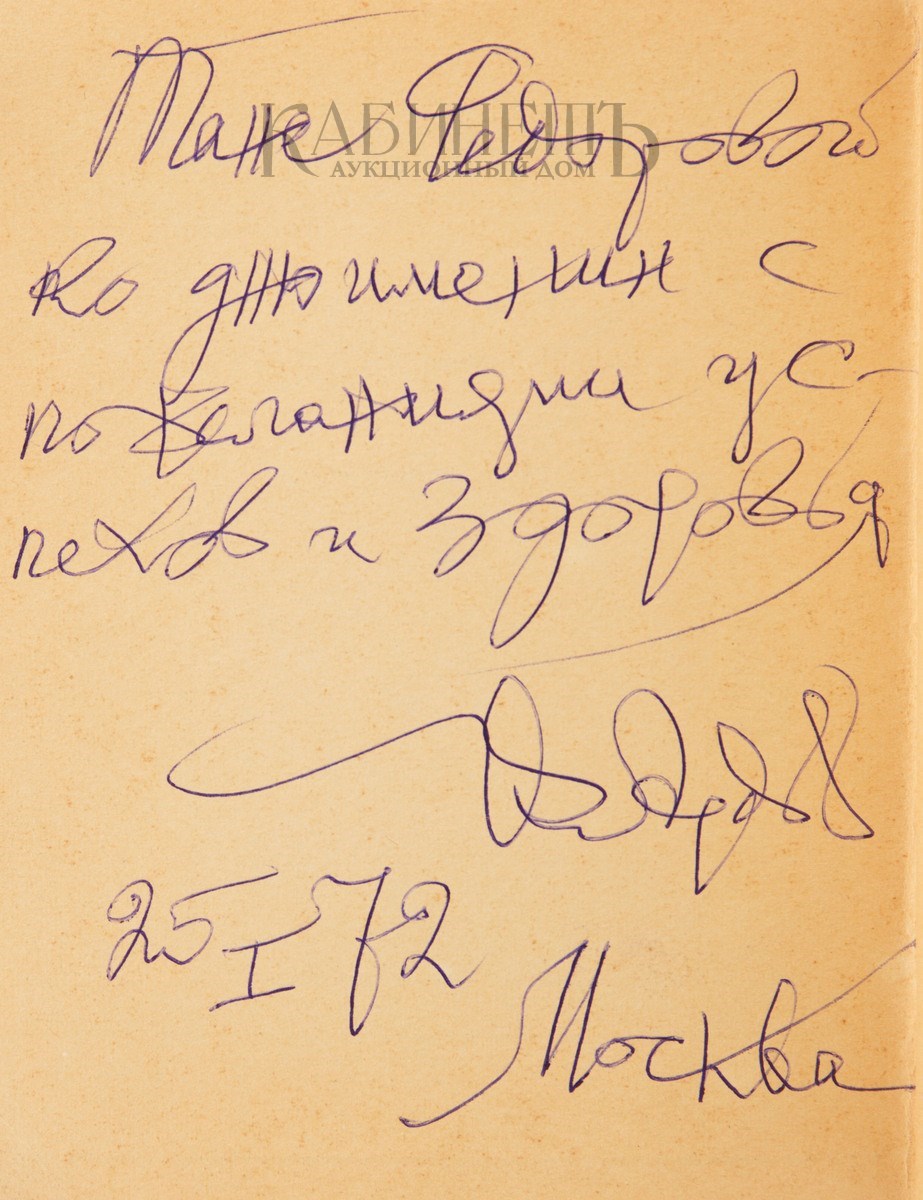 Тане Федоровой
КАБИНЕТЪ
АУКЦИОННЫЙ ДОМ
ко дню именин с
пожеланиями ус-
пехов и здоровья
25 I 72
Москва